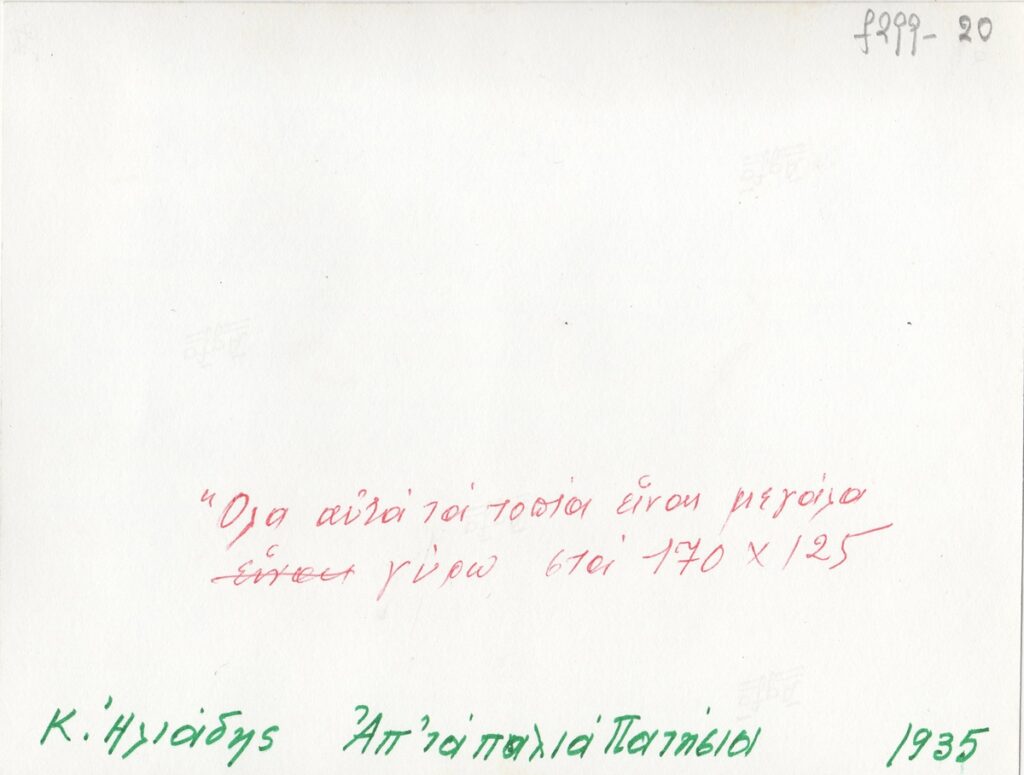 f299-20
Ὅλα αὐτὰ τὰ τοπία εἶναι μεγάλα
εἶναι γύρω στὰ 170 x 125
Κ. Ἠλιάδης Ἀπ' τὰ παλιὰ Πατήσια 1935